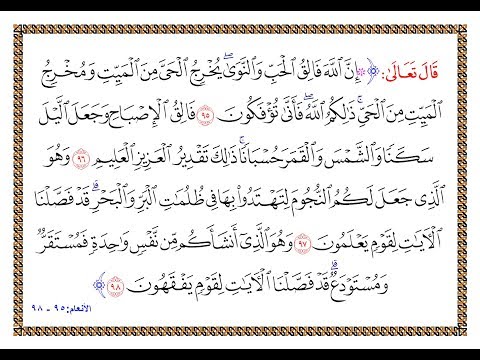 قَالَ تَعَالَىٰ: ﴿۞ إِنَّ ٱللَّهَ فَالِقُ ٱلْحَبِّ وَٱلنَّوَىٰۖ يُخْرِجُ ٱلْحَىَّ مِنَ ٱلْمَيِّتِ وَمُخْرِجُ
ٱلْمَيِّتِ مِنَ ٱلْحَىِّۚ ذَٰلِكُمُ ٱللَّهُۖ فَأَنَّىٰ تُؤْفَكُونَ ٩٥ فَالِقُ ٱلْإِصْبَاحِ وَجَعَلَ ٱلَّيْلَ
سَكَنًا وَٱلشَّمْسَ وَٱلْقَمَرَ حُسْبَانًاۚ ذَٰلِكَ تَقْدِيرُ ٱلْعَزِيزِ ٱلْعَلِيمِ ٩٦ وَهُوَ
ٱلَّذِى جَعَلَ لَكُمُ ٱلنُّجُومَ لِتَهْتَدُوا۟ بِهَا فِى ظُلُمَٰتِ ٱلْبَرِّ وَٱلْبَحْرِۗ قَدْ فَصَّلْنَا
ٱلْـَٔايَٰتِ لِقَوْمٍ يَعْلَمُونَ ٩٧ وَهُوَ ٱلَّذِىٓ أَنشَأَكُم مِّن نَّفْسٍ وَٰحِدَةٍ فَمُسْتَقَرٌّ
وَمُسْتَوْدَعٌۗ قَدْ فَصَّلْنَا ٱلْـَٔايَٰتِ لِقَوْمٍ يَفْقَهُونَ ٩٨﴾
الأنعام: ٩٥ - ٩٨